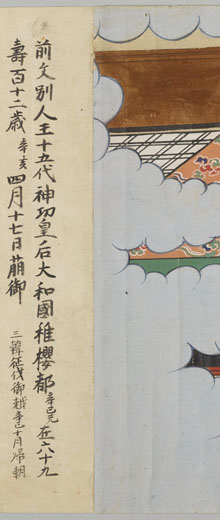 前文別人王十五代神功皇后大和國稚櫻都辛巳元在六十九
壽百十二歳辛亥四月十七日崩御
三韓征伐御越辛巳十月帰朝